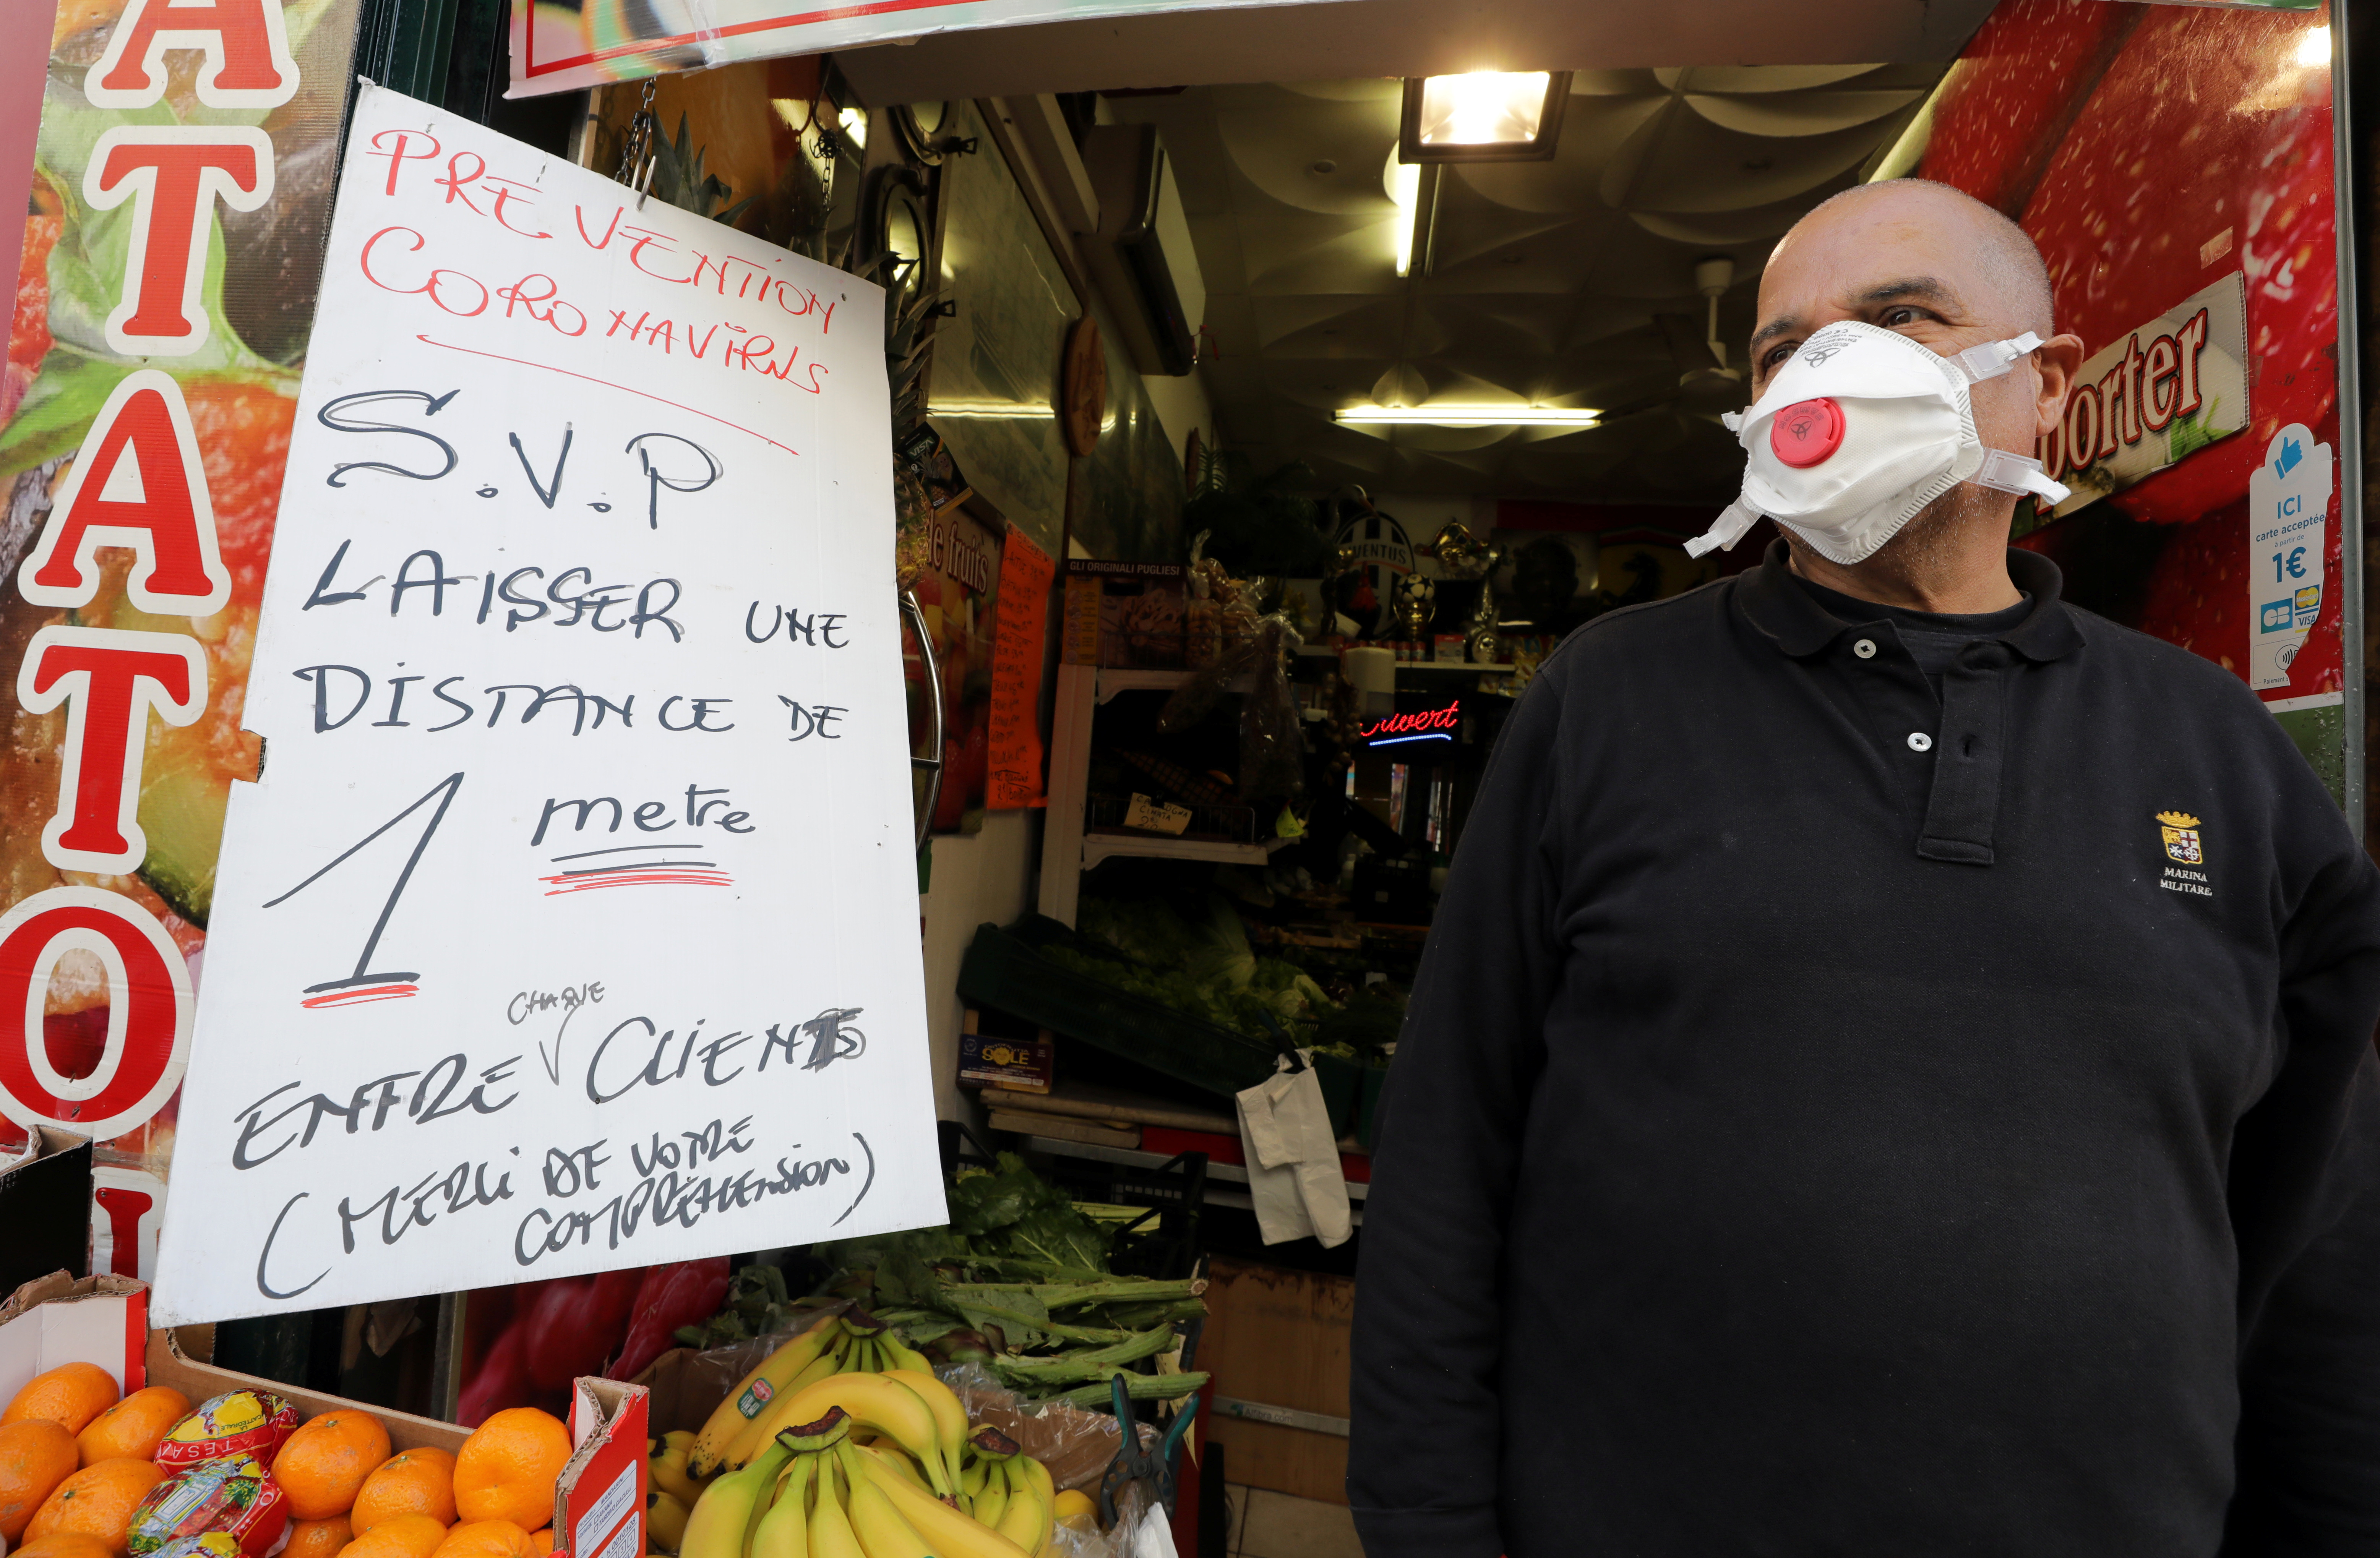 PREVENTION
CORONAVIRUS
S.V.P
LAISSER UNE
DISTANCE DE
1 metre
CHAQUE
ENTRE CLIENTS
(MERCI DE VOTRE
COMPRÉHENSION)
ATATO
porter
ICI
carte acceptée
à partir de
1€
CB
VISA
MARINA
MILITARE
de fruits
GLI ORIGINALI PUGLIESI
JUVENTUS
Ouvert
SOLE